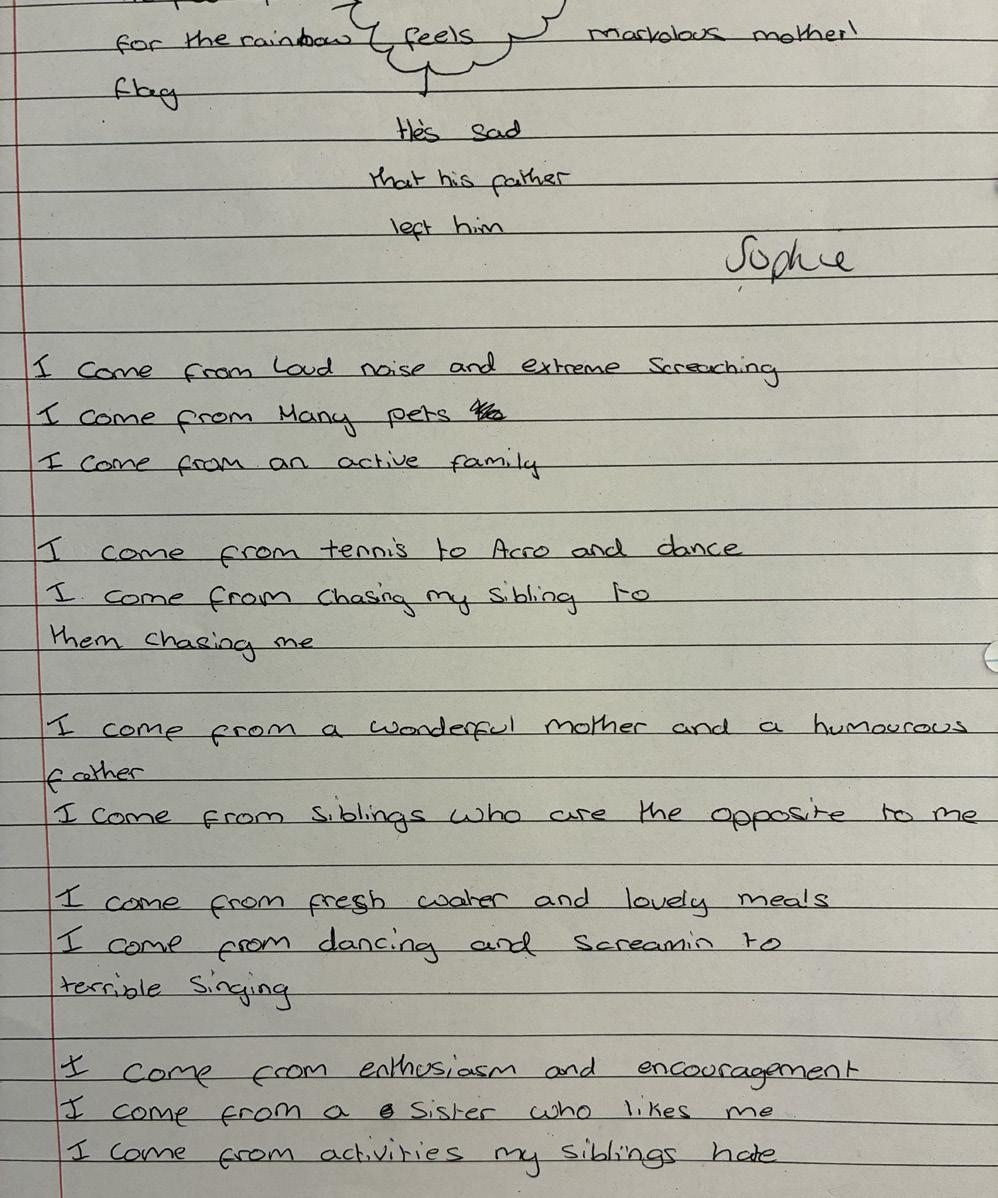 for the rainbow feels markolous mother!
flag
He's sad
that his father
left him
Sophie
I come from loud noise and extreme Screaching
I come from Many pets
I come from an active family
I come from tennis to Acro and dance
I come from chasing my sibling to
them chasing me
I come from a wonderful mother and a humourous
father
I come from siblings who are the opposite to me
I come from fresh water and lovely meals
I come from dancing and screamin to
terrible singing
I come from enthusiasm and encouragement
I come from a sister who likes me
I come from activities my siblings hate